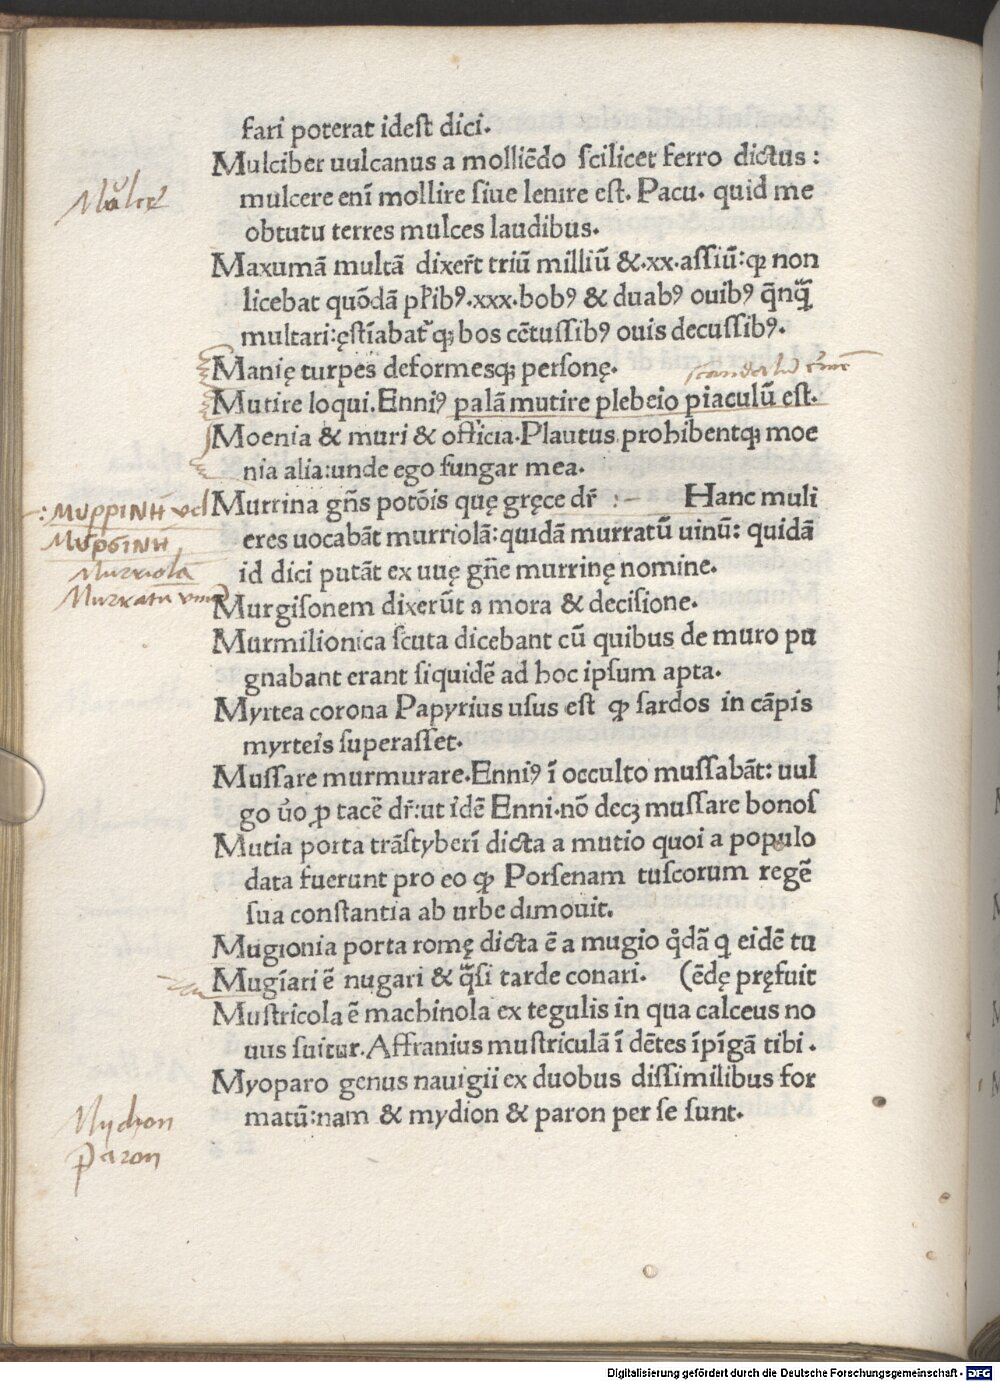 fari poterat idest dici.
Mulciber uulcanus a molliēdo scilicet ferro dictus :
mulcere enī mollire siue lenire est. Pacu. quid me
obtutu terres mulces laudibus.
Maxumā multā dixer̄t triū milliū &.xx.assiū: ꝙ non
licebat quōdā pr̄ibꝰ.xxx.bobꝰ & duabꝰ ouibꝰ q̄nꝗ̄
multari:ęstīabat᷑ qꝫ bos cētussibꝰ ouis decussibꝰ.
Manię turpes deformesqꝫ personę.
Mutire loqui.Enniꝰ palā mutire plebeio piaculū est.
Moenia & muri & officia.Plautus prohibentqꝫ moe
nia alia:unde ego fungar mea.
Murrina gn̄s potōis quę gręce dr̄ :- Hanc muli
eres uocabāt murriolā: quidā murratū uinū: quidā
id dici putāt ex uuę gn̄e murrinę nomine.
Murgisonem dixerūt a mora & decisione.
Murmilionica scuta dicebant cū quibus de muro pu
gnabant erant siquidē ad hoc ipsum apta.
Myrtea corona Papyrius usus est ꝙ sardos in cāpis
myrteis superasset.
Mussare murmurare.Enniꝰ ī occulto mussabāt: uul
go ūo ꝓ tacē dr̄:ut idē Enni.nō decꝫ mussare bonos
Mutia porta trāstyberī dicta a mutio quoi a populo
data fuerunt pro eo ꝙ Porsenam tuscorum regē
sua constantia ab urbe dimouit.
Mugionia porta romę dicta ē a mugio q̊dā q eidē tu
Mugīari ē nugari & q̄si tarde conari. (ēdę pręfuit
Mustricola ē machinola ex tegulis in qua calceus no
uus suitur.Affranius mustriculā ī dētes īpīgā tibi .
Myoparo genus nauigii ex duobus dissimilibus for
matū:nam & mydion & paron per se sunt.
Mulcer
:ΜΥΡΡΙΝΗ vel
ΜΥΡΣΙΝΗ
Murriola
Murratū vinū
Mydion
Paron
Digitalisierung gefördert durch die Deutsche Forschungsgemeinschaft - DFG